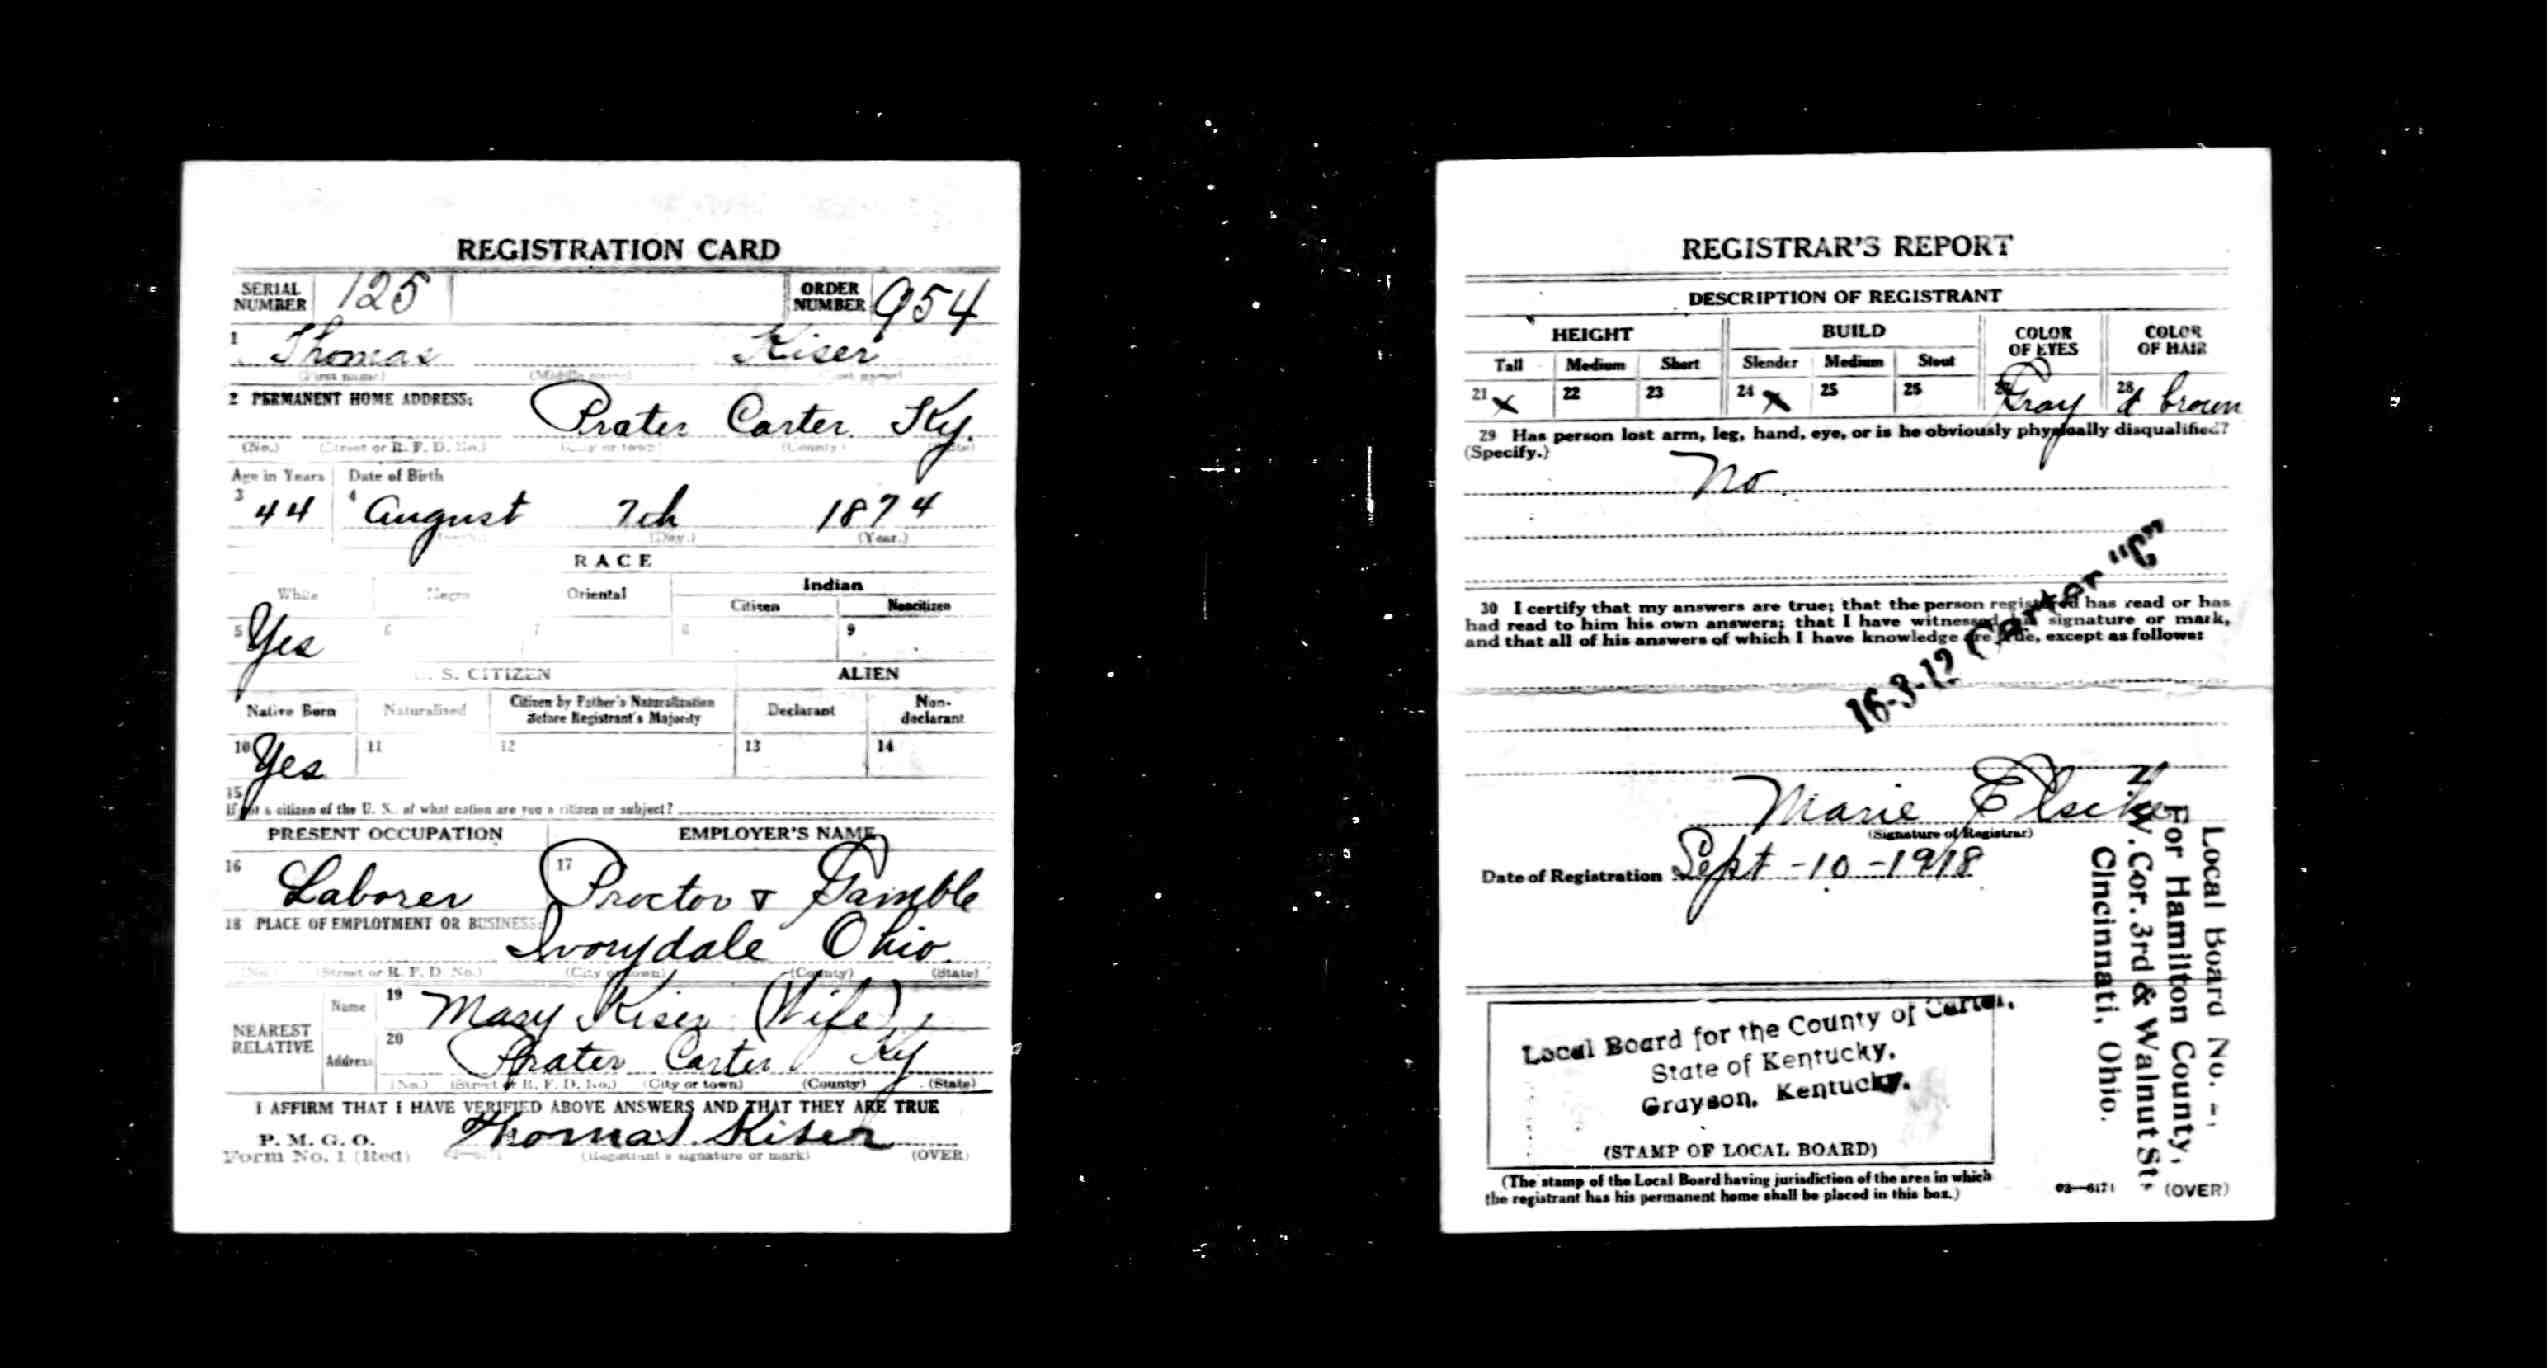 REGISTRATION CARD
SERIAL NUMBER 125 ORDER NUMBER 954
1 Thomas Kiser
(First name) (Middle name) (Last name)
2 PERMANENT HOME ADDRESS:
Prater Carter Ky.
(No.) (Street or R. F. D. No.) (City or town) (County) (State)
Age in Years Date of Birth
3 44 4 August 7th 1874
(Month.) (Day.) (Year.)
RACE
White Negro Oriental Indian
Citizen Noncitizen
5 Yes 6 7 8 9
U. S. CITIZEN ALIEN
Native Born Naturalized Citizen by Father's Naturalization Before Registrant's Majority Declarant Non-declarant
10 Yes 11 12 13 14
15
If not a citizen of the U. S., of what nation are you a citizen or subject?
PRESENT OCCUPATION EMPLOYER'S NAME
16 Laborer 17 Proctor & Gamble
18 PLACE OF EMPLOYMENT OR BUSINESS:
Ivorydale Ohio.
(No.) (Street or R. F. D. No.) (City or town) (County) (State)
NEAREST RELATIVE
Name 19 Mary Kiser (Wife)
Address 20 Prater Carter Ky
(No.) (Street or R. F. D. No.) (City or town) (County) (State)
I AFFIRM THAT I HAVE VERIFIED ABOVE ANSWERS AND THAT THEY ARE TRUE
P. M. G. O.
Form No. 1 (Red) Thomas Kiser
(Registrant's signature or mark) (OVER)
REGISTRAR'S REPORT
DESCRIPTION OF REGISTRANT
HEIGHT BUILD COLOR OF EYES COLOR OF HAIR
Tall Medium Short Slender Medium Stout
21 x 22 23 24 x 25 25 27 Gray 28 d brown
29 Has person lost arm, leg, hand, eye, or is he obviously physically disqualified?
(Specify.)
No
30 I certify that my answers are true; that the person registered has read or has
had read to him his own answers; that I have witnessed his signature or mark,
and that all of his answers of which I have knowledge are true, except as follows:
16-3-12 Carter "C"
Marie
(Signature of Registrar)
Date of Registration Sept-10-1918
Local Board for the County of Carter,
State of Kentucky.
Grayson, Kentucky.
(STAMP OF LOCAL BOARD)
(The stamp of the Local Board having jurisdiction of the area in which
the registrant has his permanent home shall be placed in this box.)
03—6171 (OVER)
Local Board No. -,
For Hamilton County,
N.W. Cor. 3rd & Walnut St.
Cincinnati, Ohio.